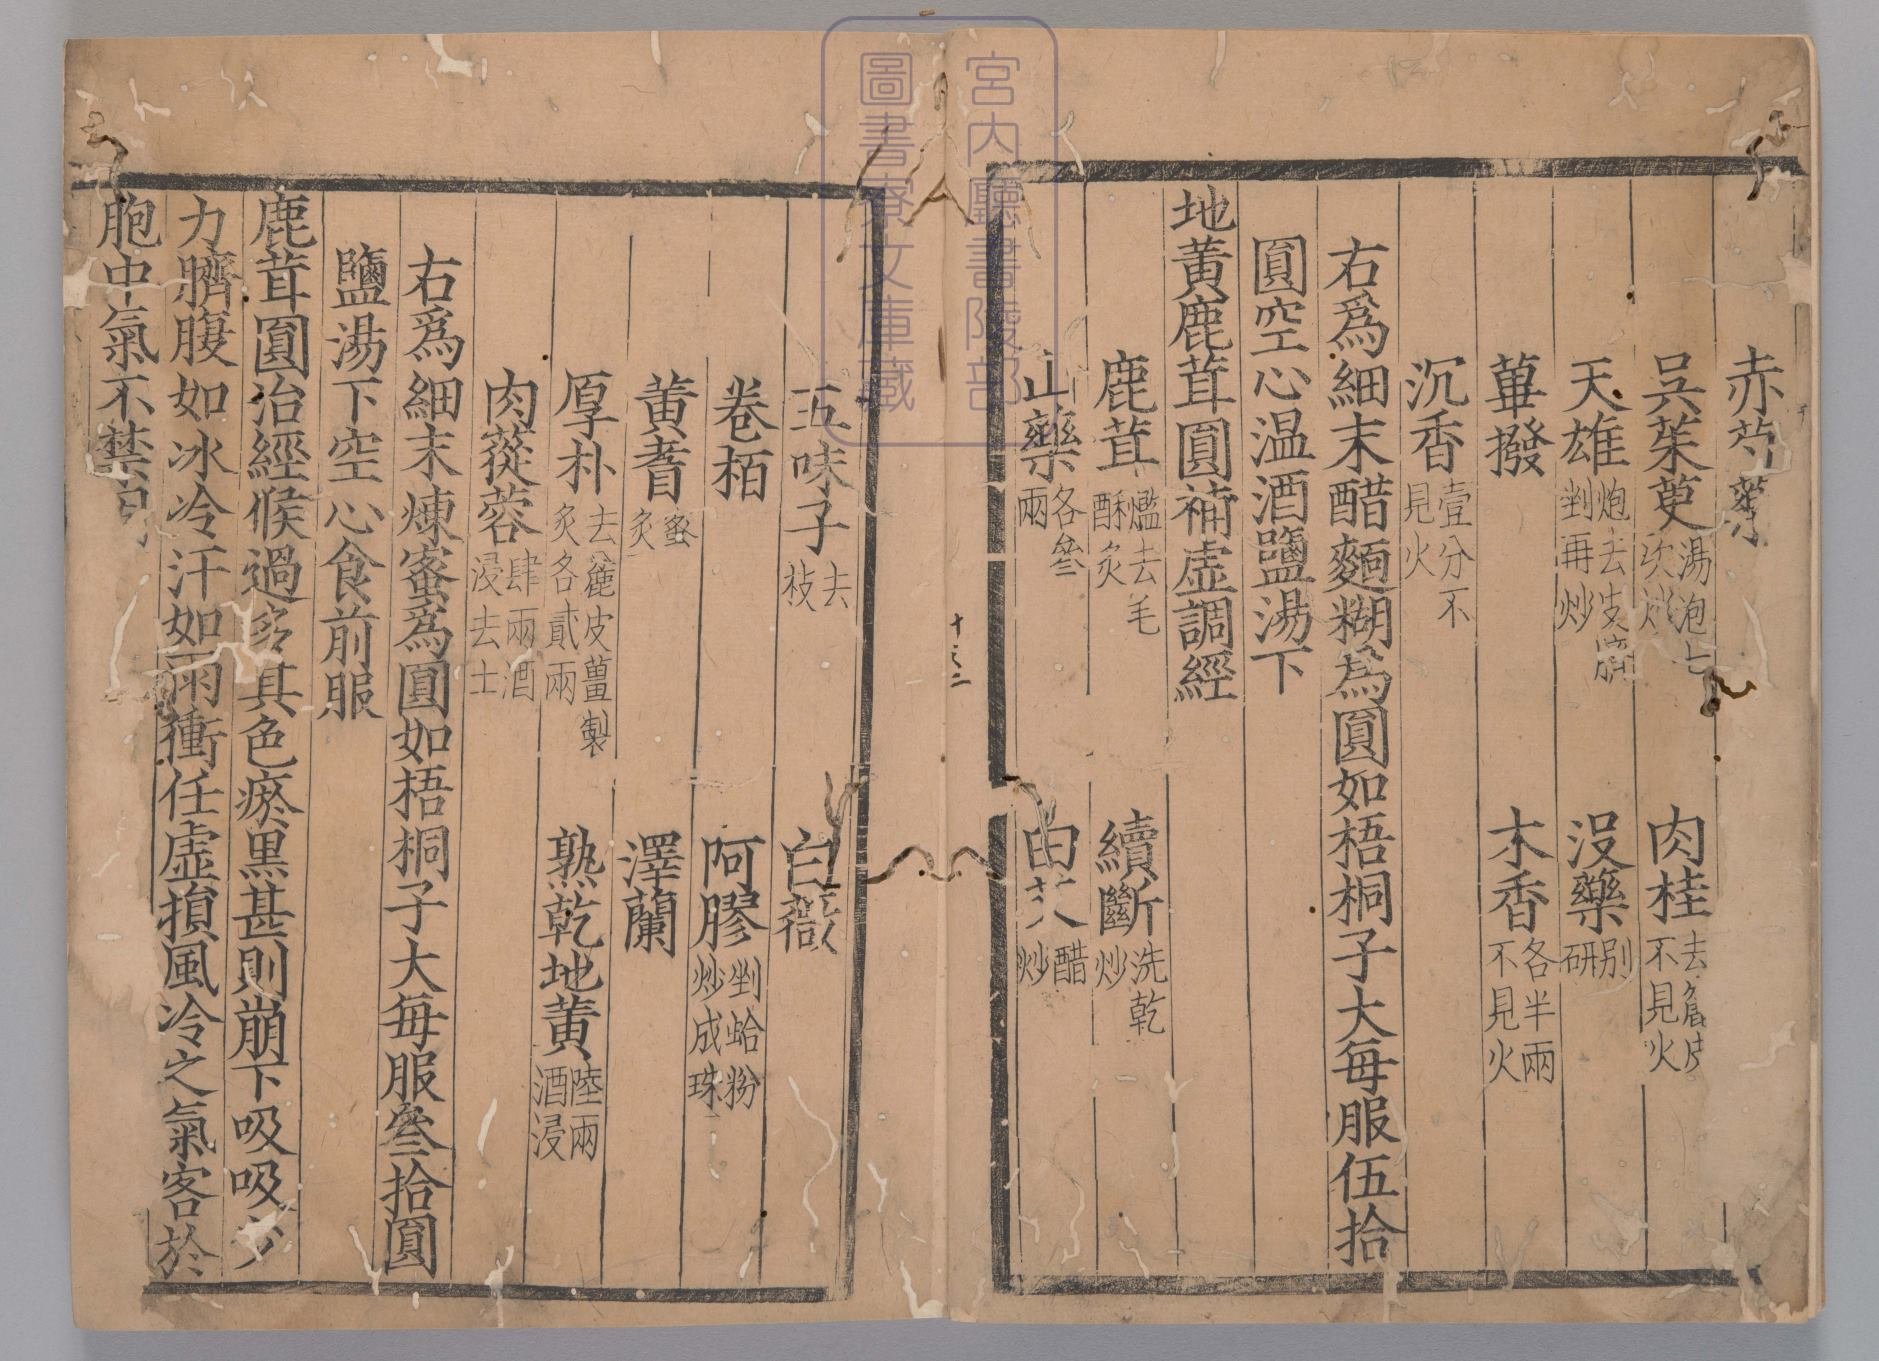 赤芍藥
吳茱萸湯泡七次炒 肉桂去麄皮不見火
天雄炮去皮臍剉再炒 沒藥别研
蓽撥 木香各半兩不見火
沉香壹分不見火
右爲細末醋麵糊爲圓如梧桐子大每服伍拾
圓空心温酒鹽湯下
地黃鹿茸圓補虛調經
鹿茸爁去毛酥炙 續斷洗乾炒
山藥各叄兩 白艾醋炒
十六二
五味子去枝 白薇
卷栢 阿膠剉蛤粉炒成珠
黃耆蜜炙 澤蘭
厚朴去麄皮薑製炙各貳兩 熟乾地黃陸兩酒浸
肉蓯蓉肆兩酒浸去土
右爲細末煉蜜爲圓如梧桐子大每服叄拾圓
鹽湯下空心食前服
鹿茸圓治經候過多其色瘀黑甚則崩下吸吸少
力臍腹如冰冷汗如雨衝任虛損風冷之氣客於
胞中氣不禁
宮内廳書陵部
圖書寮文庫藏